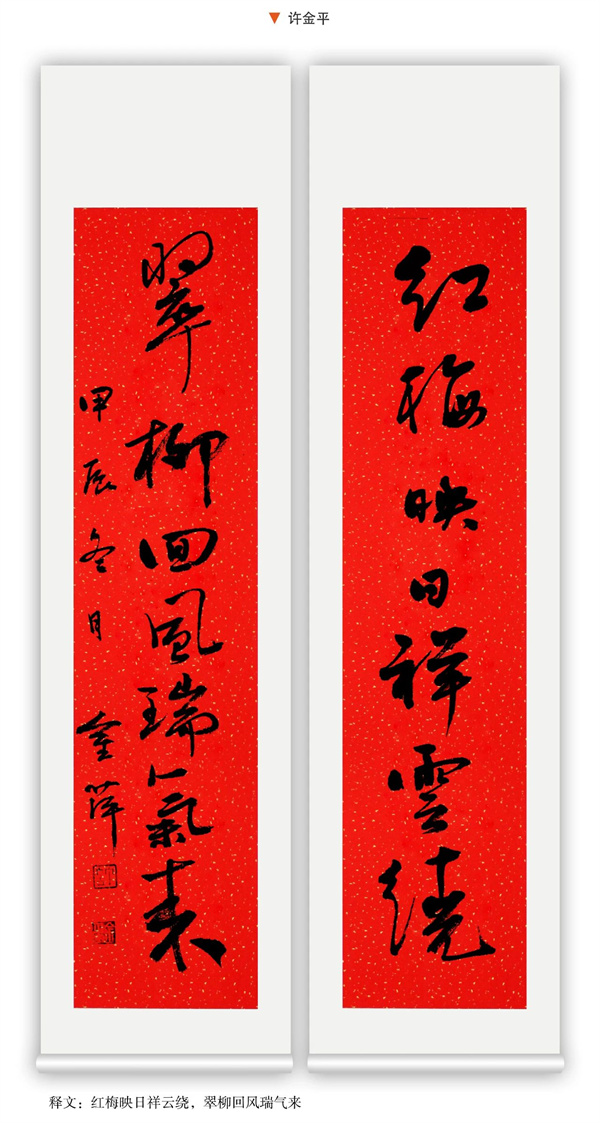 ▼ 许金平
红梅映日祥雲繞
翠柳回風瑞氣来
甲辰冬月
金萍
释文：红梅映日祥云绕，翠柳回风瑞气来